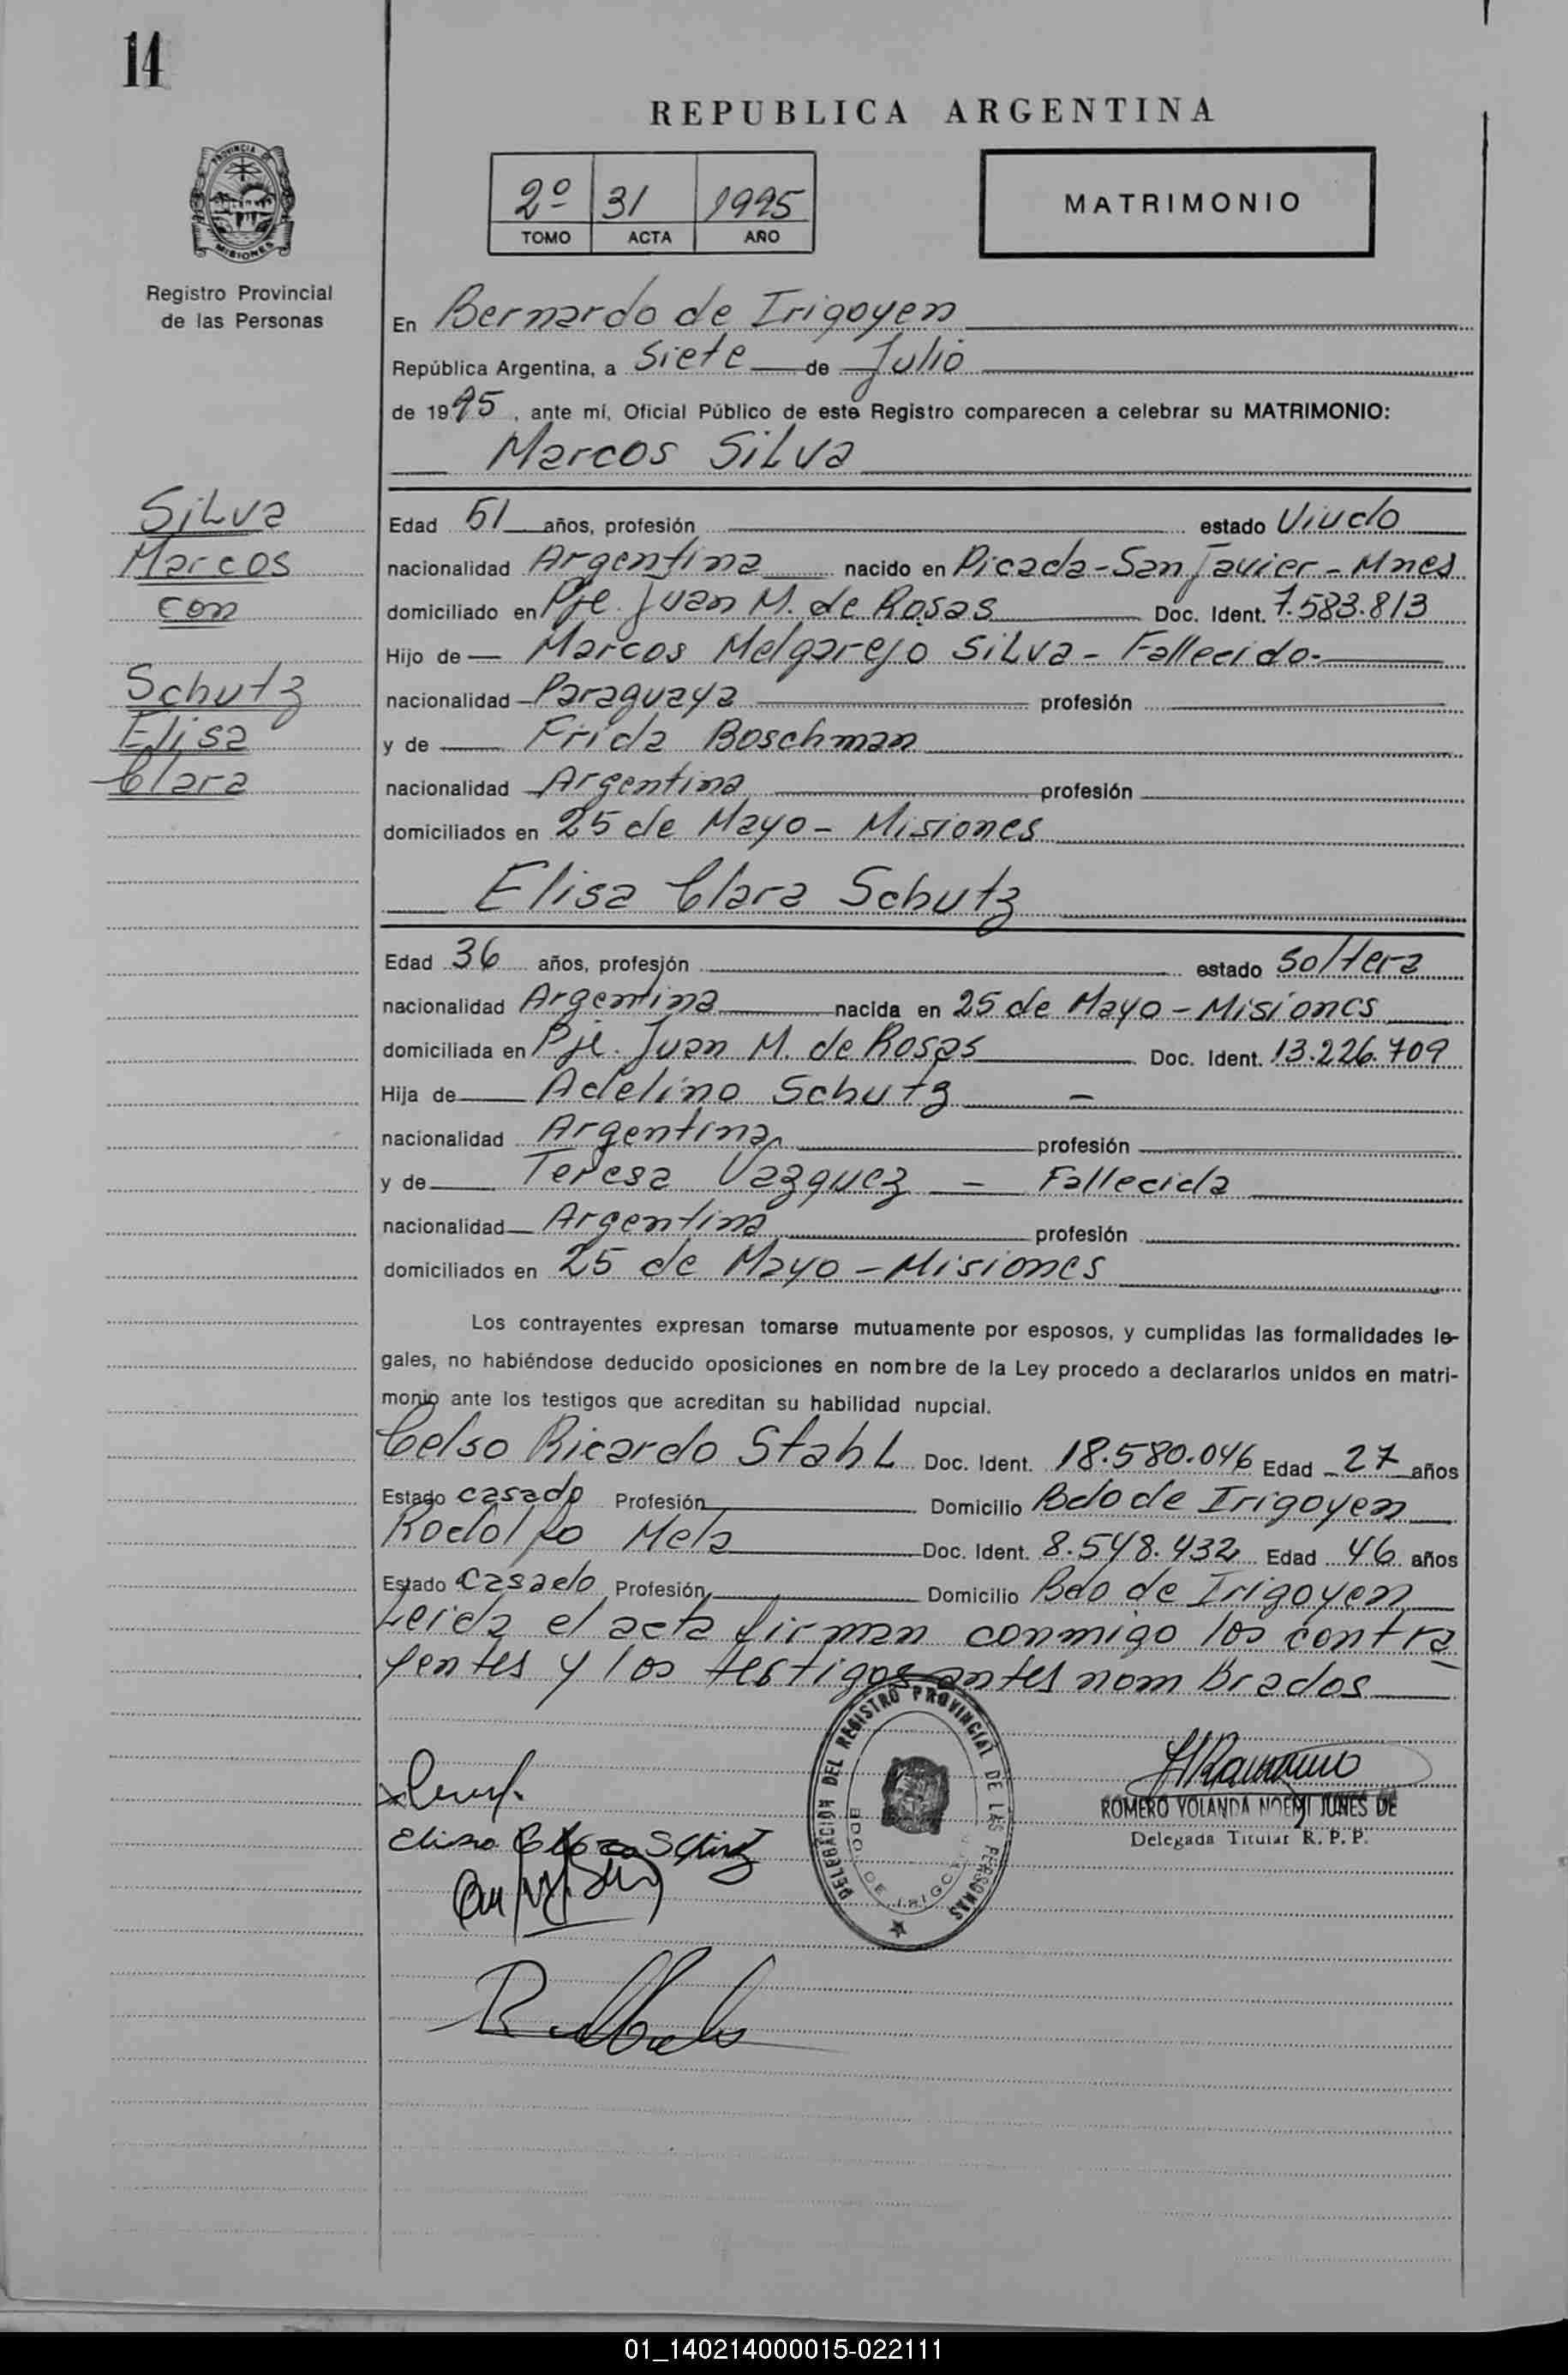 14
REPUBLICA ARGENTINA
2º 31 1995
TOMO ACTA AÑO
MATRIMONIO
PROVINCIA DE
MISIONES
Registro Provincial
de las Personas
En Bernardo de Irigoyen
República Argentina, a Siete de Julio
de 1995, ante mí, Oficial Público de este Registro comparecen a celebrar su MATRIMONIO:
Marcos Silva
Silva
Marcos
con
Schutz
Elisa
Clara
Edad 51 años, profesión estado Viudo
nacionalidad Argentina nacido en Picada-San Javier-Mnes
domiciliado en Pje. Juan M. de Rosas Doc. Ident. 7.583.813
Hijo de Marcos Melgarejo Silva - Fallecido.
nacionalidad Paraguaya profesión
y de Frida Boschman
nacionalidad Argentina profesión
domiciliados en 25 de Mayo - Misiones
Elisa Clara Schutz
Edad 36 años, profesión estado Soltera
nacionalidad Argentina nacida en 25 de Mayo - Misiones
domiciliada en Pje. Juan M. de Rosas Doc. Ident. 13.226.709
Hija de Adelino Schutz -
nacionalidad Argentina profesión
y de Teresa Vazquez - Fallecida
nacionalidad Argentina profesión
domiciliados en 25 de Mayo - Misiones
Los contrayentes expresan tomarse mutuamente por esposos, y cumplidas las formalidades le-
gales, no habiéndose deducido oposiciones en nombre de la Ley procedo a declararlos unidos en matri-
monio ante los testigos que acreditan su habilidad nupcial.
Celso Ricardo Stahl Doc. Ident. 18.580.046 Edad 27 años
Estado casado Profesión Domicilio Bdo de Irigoyen
Rodolfo Mela Doc. Ident. 8.548.432 Edad 46 años
Estado Casado Profesión Domicilio Bdo de Irigoyen
Leida el acta firman conmigo los contra
yentes y los testigos antes nombrados
DELEGACIÓN DEL REGISTRO PROVINCIAL DE LAS PERSONAS
BDO. DE IRIGOYEN
Elisa Clara Schutz
ROMERO YOLANDA NOEMI JUNES DE
Delegada Titular R. P. P.
01_140214000015-022111